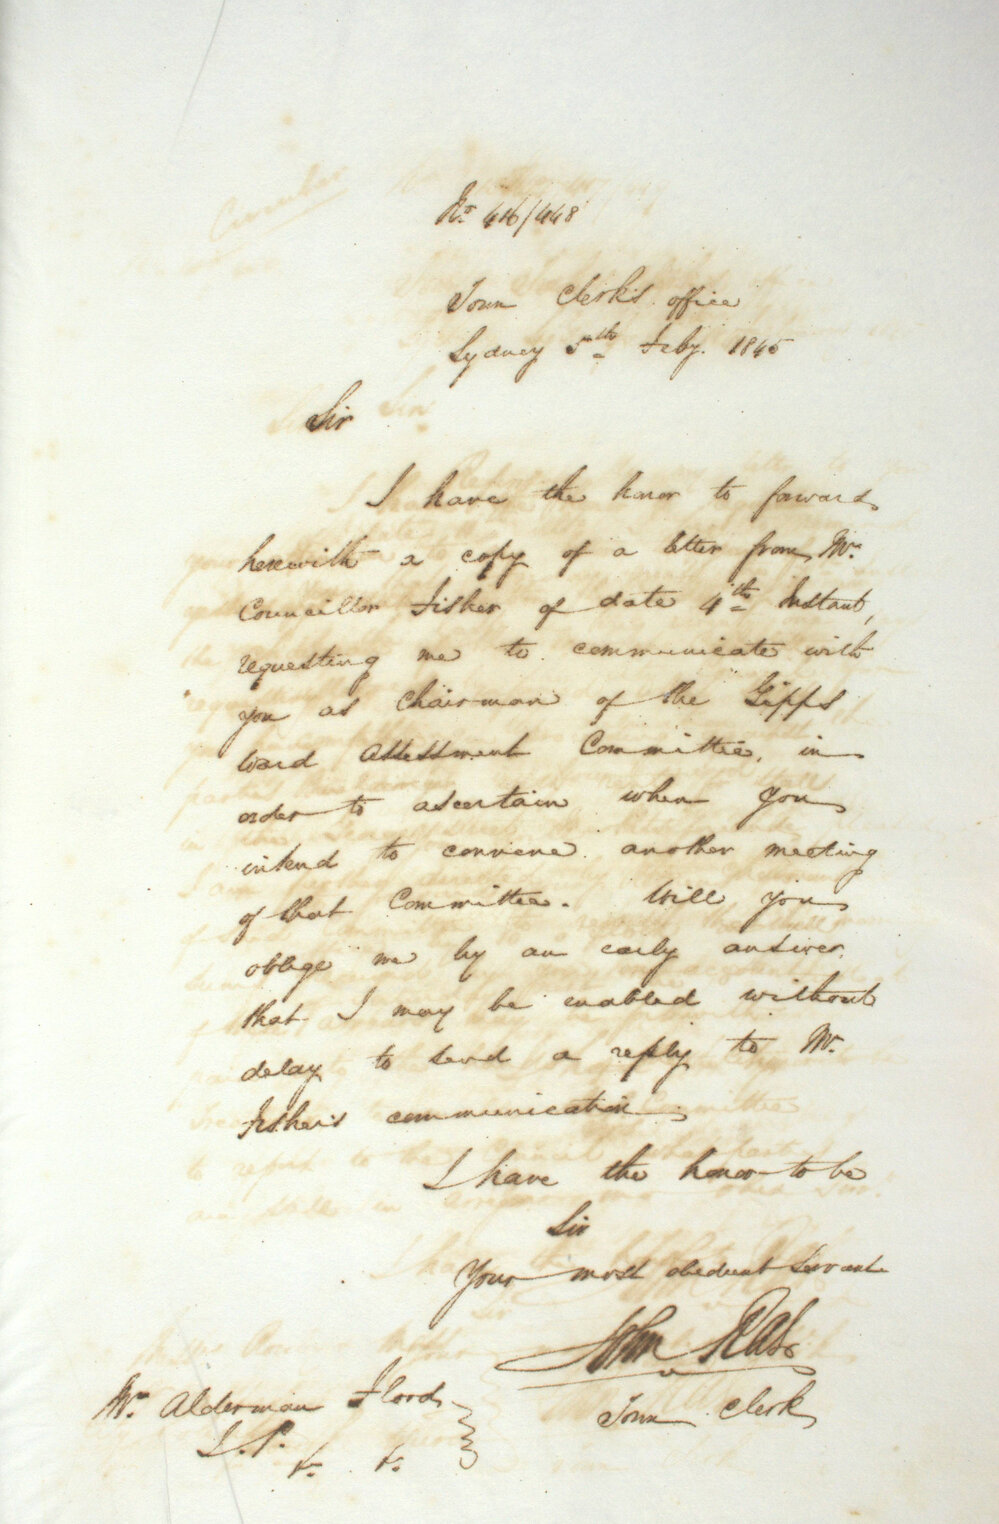 No. 46/448
Town Clerk's office
Sydney 5th Feby. 1845
Sir
I have the honor to forward
herewith a copy of a letter from Mr.
Councillor Fisher of date 4th Instant,
requesting me to communicate with
you as Chairman of the Gipps
Ward Assessment Committee, in
order to ascertain when you
intend to convene another meeting
of that Committee. Will you
oblige me by an early answer,
that I may be enabled without
delay to send a reply to Mr.
Fisher's communication.
I have the honor to be
Sir
Your most obedient Servant
John Rae
Town Clerk
Mr. Alderman Flood
J.P.
&c. &c.